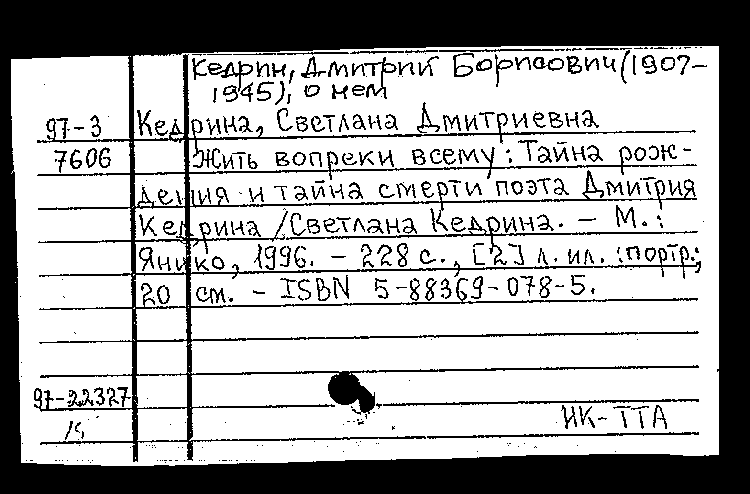 Кедрин, Дмитрий Борисович (1907-
1945), о нем
97-3 Кедрина, Светлана Дмитриевна
7606 Жить вопреки всему: Тайна рож-
дения и тайна смерти поэта Дмитрия
Кедрина / Светлана Кедрина. - М.:
Янико, 1996. - 228 с., [2] л. ил. : портр.;
20 см. - ISBN 5-88369-078-5.
97-22327
ИК-ТТА